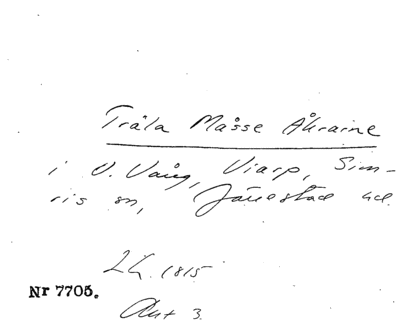 Tråla Måsse Åkraine
i V. Vång, Viarp, Sim-
ris sn, Järrestad hd.
2/6 1815
Nr 7705.
Ant 3.